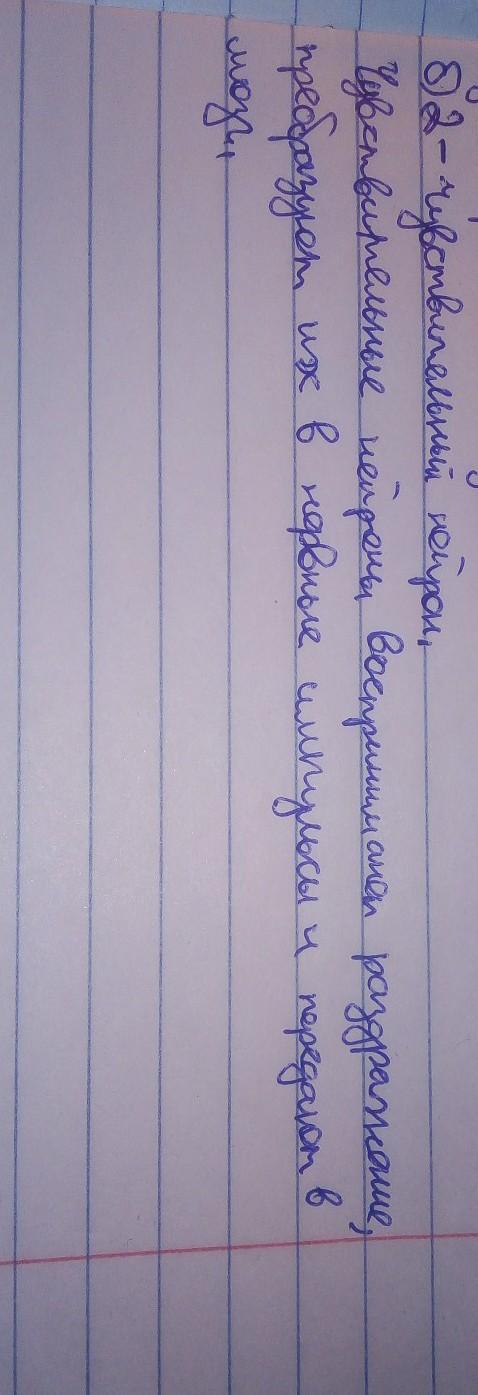 б) 2 - чувствительный нейрон,
Чувствительные нейроны воспринимает раздражение,
преобразует их в нервные импульсы и передают в
мозг,